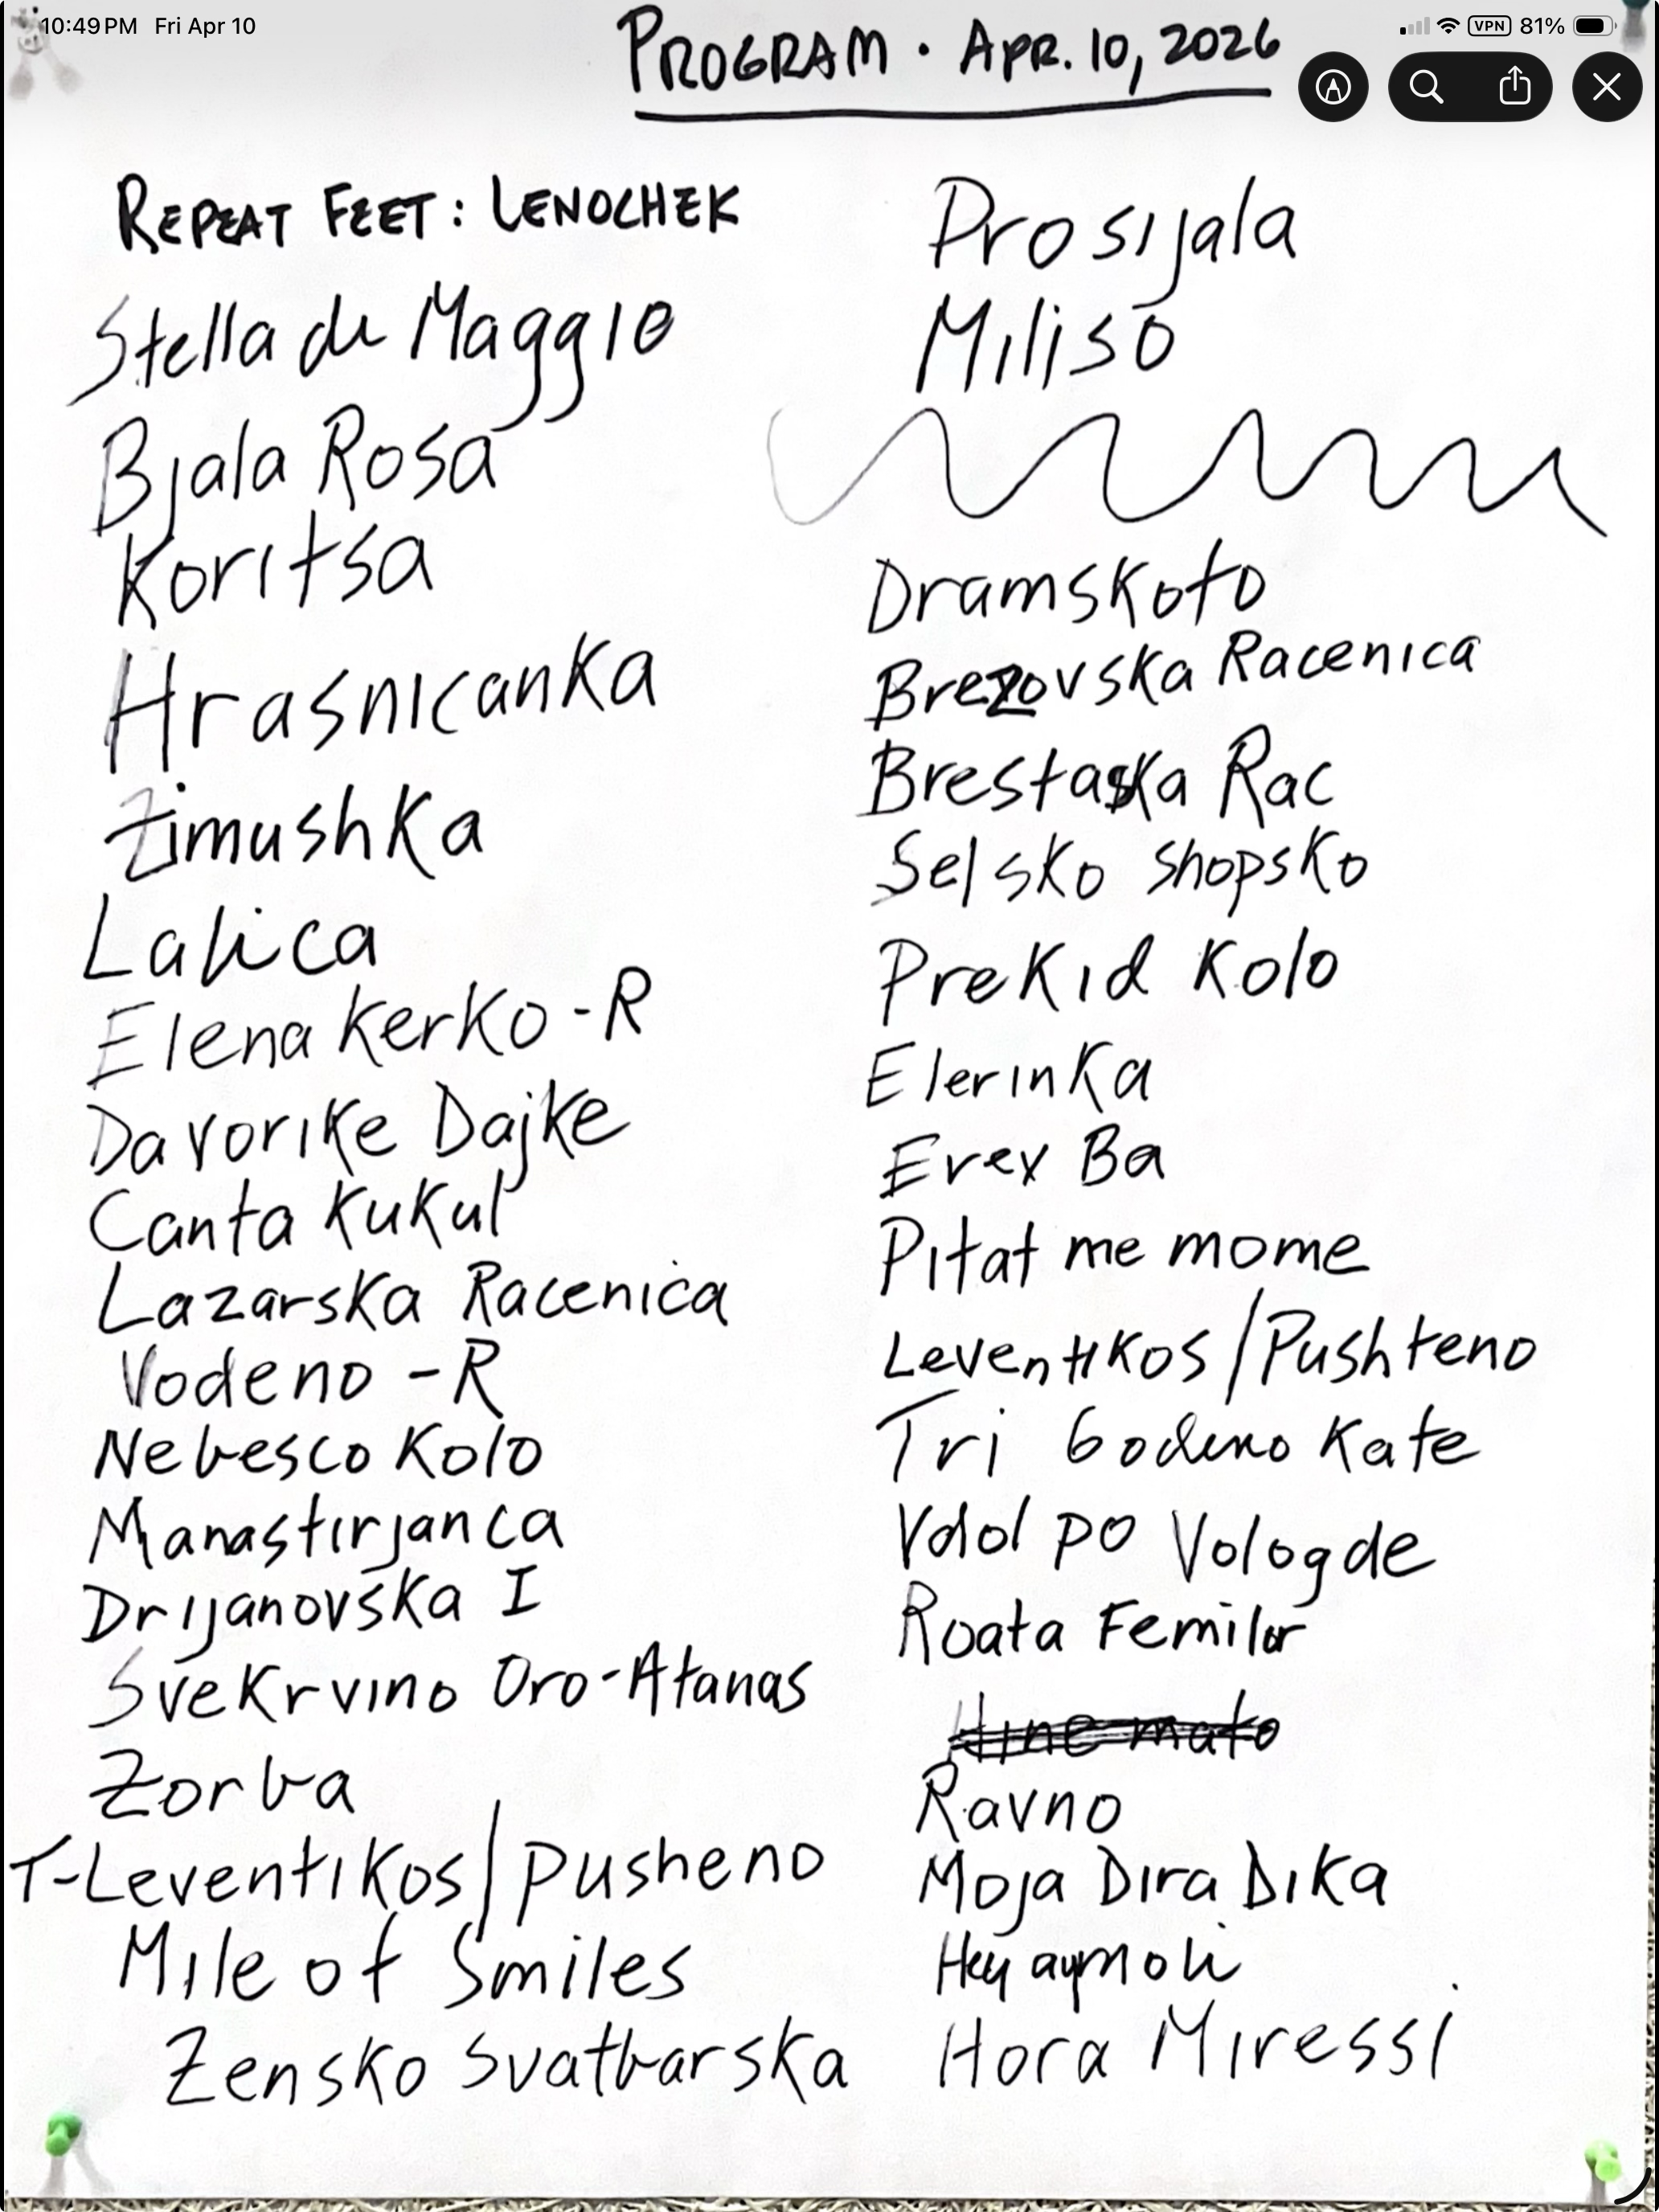 10:49 PM Fri Apr 10
VPN 81%
PROGRAM · APR. 10, 2026
REPEAT FEET: LENOCHEK
Stella di Maggio
Bjala Rosa
Koritsa
Hrasnicanka
Zimushka
Lalica
Elena Kerko -R
Davorike Dajke
Canta Kukul
Lazarska Racenica
Vodeno -R
Nebesco Kolo
Manastirjanca
Drijanovska I
Svekrvino Oro-Atanas
Zorba
T-Leventikos/pusheno
Mile of Smiles
Zensko Svatbarska
Prosijala
Miliso
Dramskoto
Brezovska Racenica
Brestaska Rac
Selsko Shopsko
Prekid Kolo
Elerinka
Erev Ba
Pitat me mome
Leventikos/Pushteno
Tri Godeno Kate
Vdol po Vologde
Roata Femilor
Ravno
Moja Dira Dika
Hora Miressi